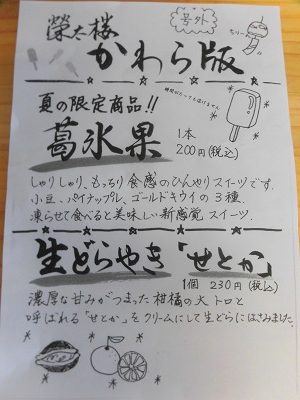 号外
榮太楼
ちりーん
かわら版
夏の限定商品!!
時間がたっても溶けません
葛氷果
1本
200円(税込)
しゃりしゃり、もっちり食感のひんやりスイーツです。
小豆、パイナップル、ゴールドキウイの3種。
凍らせて食べると美味しい新感覚スイーツ。
生どらやき「せとか」
1個 230円(税込)
濃厚な甘みがつまった柑橘の大トロと
呼ばれる「せとか」をクリームにして生どらにはさみました。